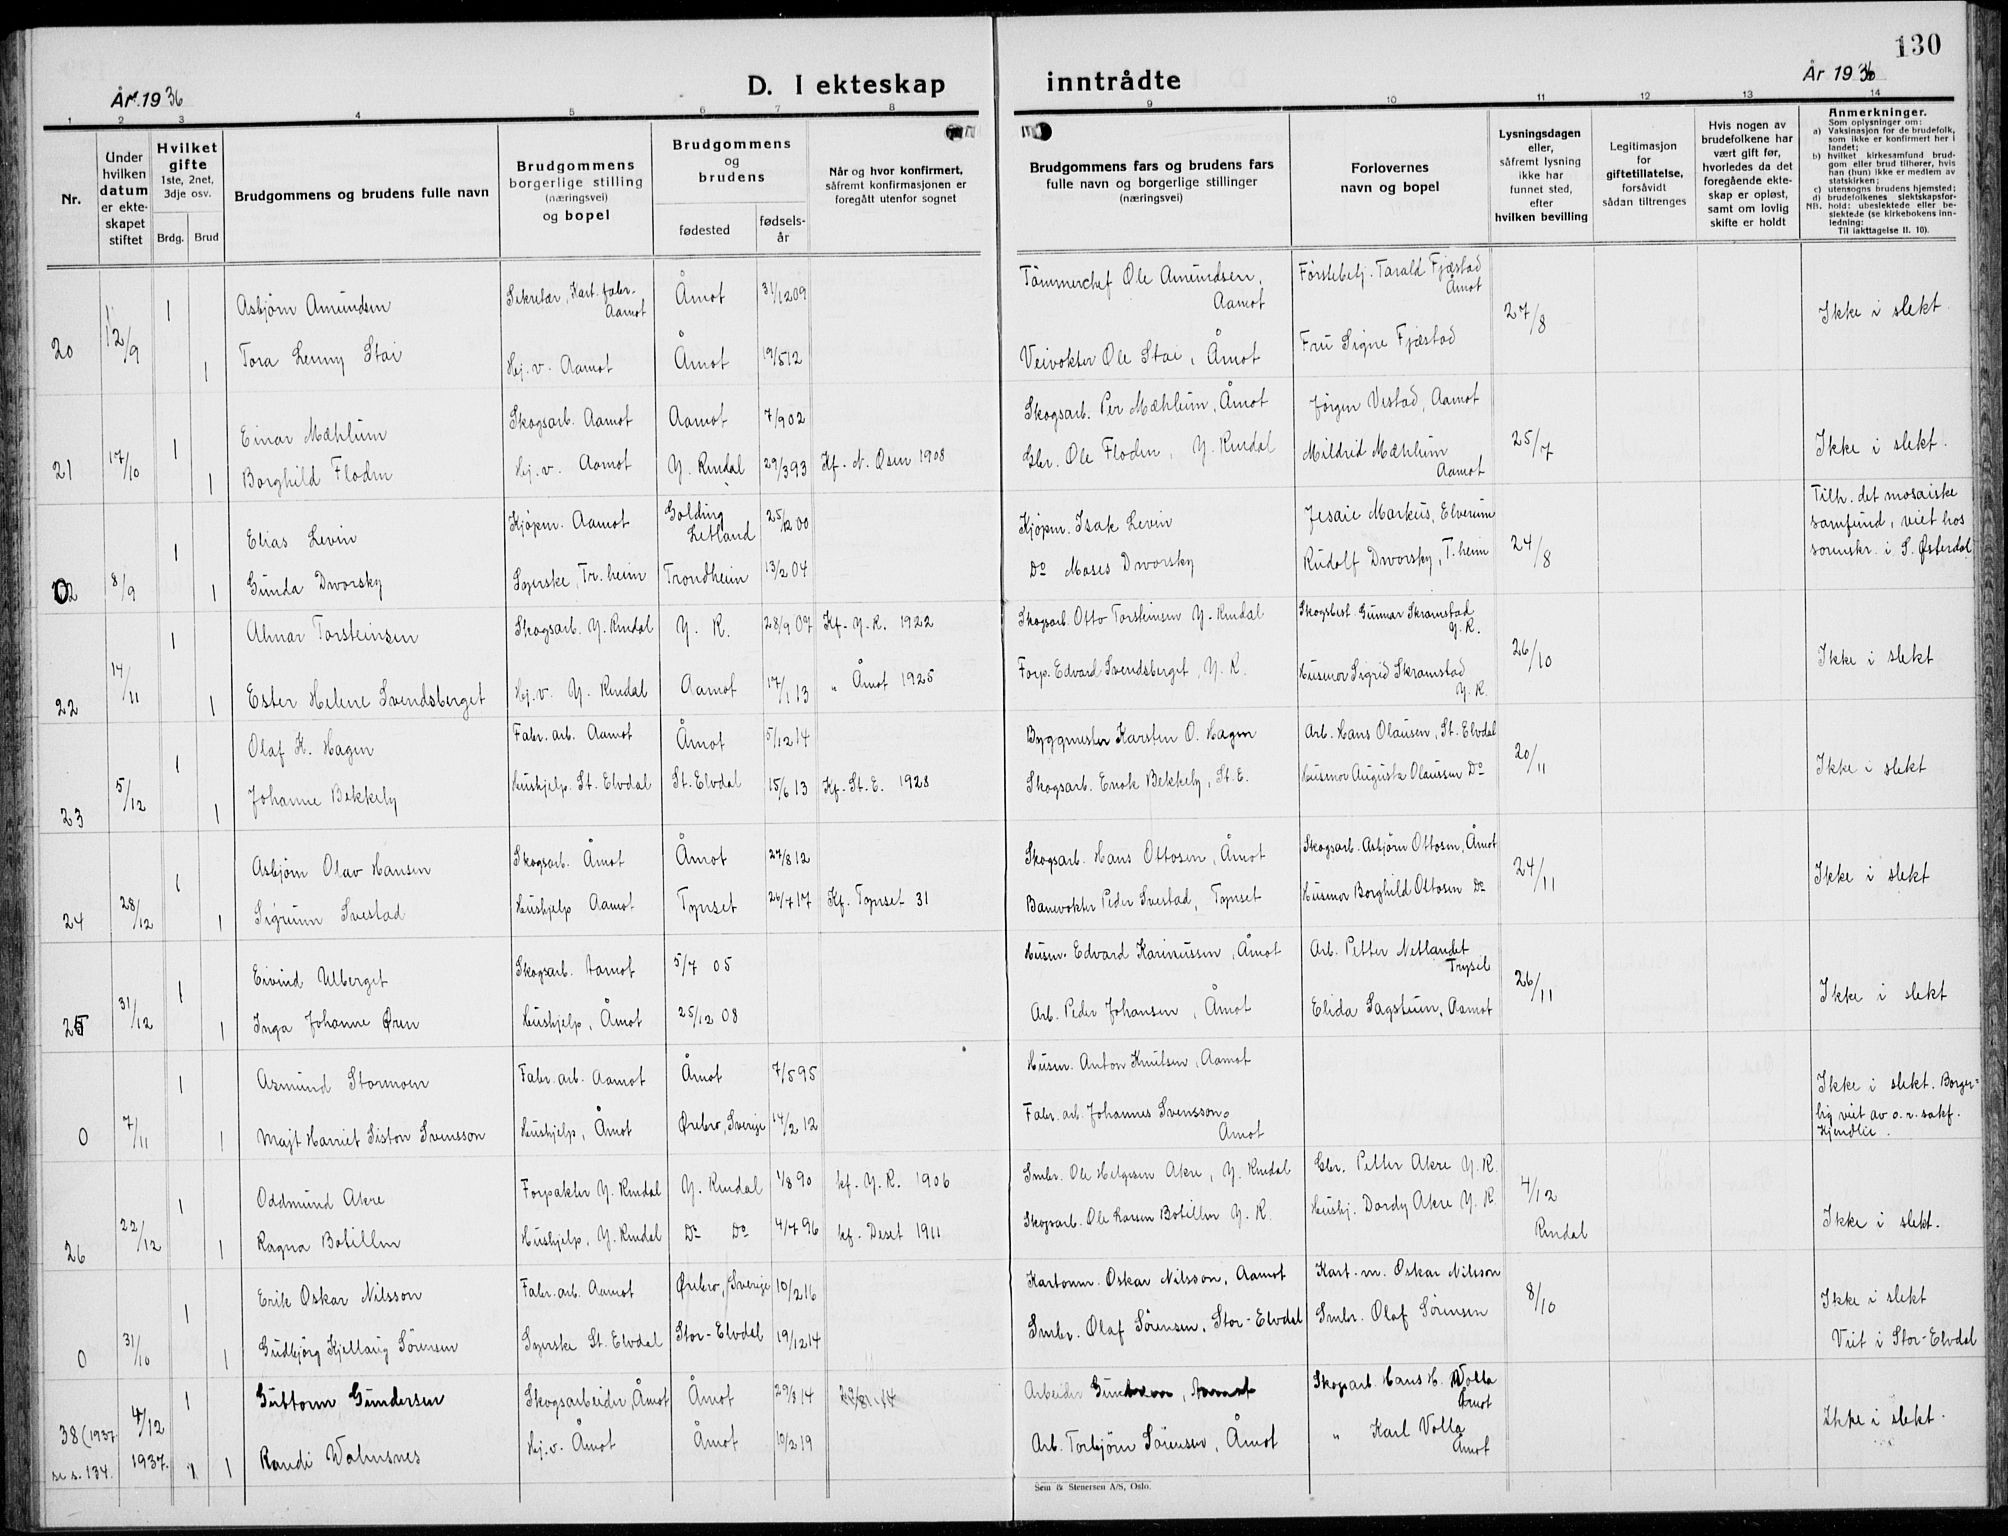 130
År 1936
D. I ekteskap inntrådte
År 1936
1 2 3 4 5 6 7 8 9 10 11 12 13 14
Nr.
Under hvilken datum er ekteskapet stiftet
Hvilket gifte 1ste, 2net, 3dje osv.
Brdg. Brud
Brudgommens og brudens fulle navn
Brudgommens borgerlige stilling (næringsvei) og bopel
Brudgommens og brudens
fødested
fødselsår
Når og hvor konfirmert, såfremt konfirmasjonen er foregått utenfor sognet
Brudgommens fars og brudens fars fulle navn og borgerlige stillinger (næringsvei)
Forlovernes navn og bopel
Lysningsdagen eller, såfremt lysning ikke har funnet sted, efter hvilken bevilling
Legitimasjon for giftetillatelse, forsåvidt sådan tiltrenges
Hvis nogen av brudefolkene har vært gift før, hvorledes da det foregående ekteskap er opløst, samt om lovlig skifte er holdt
Anmerkninger.
Som oplysninger om:
a) Vaksinasjon for de brudefolk, som ikke er konfirmert her i landet;
b) hvilket kirkesamfund brudgom eller brud tilhører, hvis han (hun) ikke er medlem av statskirken;
c) utensogns brudens hjemsted;
d) brudefolkenes slektskapsforhold: ubeslektede eller beslektede (se kirkebokens innledning:
NB.
Til iakttagelse II. 10).
20 12/9 1 Asbjørn Amundsen Sekretær, Kart. fabr. Aamot Åmot 31/12 09 Tømmerchef Ole Amundsen, Aamot Førstebetj. Tarald Fjæstad Åmot 27/8 Ikke i slekt.
1 Tora Lenny Stai Hj. v. Aamot Åmot 19/5 12 Veivokter Ole Stai, Åmot Fru Signe Fjæstad
21 17/10 1 Einar Mæhlum Skogsarb. Aamot Aamot 7/9 02 Skogsarb. Per Mæhlum, Åmot Jørgen Vestad, Aamot 25/7 Ikke i slekt.
1 Borghild Floden Hj. v. Aamot Y. Rendal 29/3 93 Kf. N. Osen 1908 Gbr. Ole Floden, Y. Rendal Mildrid Mæhlum Aamot
0 8/9 1 Elias Levin Kjøpm. Aamot Golding Letland 25/12 00 Kjøpm. Isak Levin Jesaie Markus, Elverum 24/8 Tilh. det mosaiske samfund, viet hos sorenskr. i S. Østerdal
1 Gunda Dworsky Syerske, Tr. heim Trondheim 13/2 04 Do Moses Dworsky Rudolf Dworsky, T. heim
22 14/11 1 Almar Torsteinsen Skogsarb. Y. Rendal Y. R. 28/9 07 Kf. Y. R. 1922 Skogsarb. Otto Torsteinsen Y. Rendal Skogsbest. Gunnar Skramstad Y. R. 26/10 Ikke i slekt
1 Ester Helene Svendsberget Hj. v. Y. Rendal Aamot 17/1 13 " Åmot 1925 Forp. Edvard Svendsberget, Y. R. Husmor Sigrid Skramstad Y. R.
23 5/12 1 Olaf K. Hagen Fabr. arb. Aamot Åmot 5/12 14 Byggmester Karsten O. Hagen Arb. Hans Olausen, St. Elvdal 20/11 Ikke i slekt
1 Johanne Bekkely Hushjelp. St. Elvdal St. Elvdal 15/6 13 Kf. St. E. 1928 Skogsarb. Enok Bekkely, St. E. Husmor Augusta Olaussen Do
24 28/12 1 Asbjørn Olav Hansen Skogsarb. Åmot Åmot 27/8 12 Skogsarb. Hans Ottosen, Åmot Skogsarb. Asbjørn Ottosen, Åmot 24/11 Ikke i slekt
1 Sigrunn Svestad Hushjelp Aamot Tynset 26/7 17 Kf. Tynset 31 Banevokter Peder Svestad, Tynset Husmor Borghild Ottosen Do
25 31/12 1 Eivind Ulberget Skogsarb. Aamot 5/7 05 Husm. Edvard Karinussen, Åmot Arb. Petter Netlandet Trysil 26/11 Ikke i slekt
1 Inga Johanne Øren Hushjelp, Åmot 25/12 08 Arb. Peder Johansen, Åmot Elida Sagstuen, Aamot
0 7/11 1 Asmund Stormoen Fabr. arb. Aamot Åmot 7/5 95 Husm. Anton Knutsen, Aamot Ikke i slekt. Borgerlig viet av o. r. sakf. Kjendlie.
1 Majt Harriet Siston Svensson Hushjelp, Åmot Ørebro, Sverige 14/2 12 Fabr. arb. Johannes Svensson, Åmot
26 22/12 1 Oddmund Akre Forpakter Y. Rendal Y. Rendal 1/8 90 kf. Y. R. 1906 Smbr. Ole Helgesen Akre, Y. Rendal Gbr. Petter Akre Y. R. 4/12 Rendal Ikke i slekt.
1 Ragna Botillen Hushjelp, Y. Rendal Do Do 4/7 96 kf. Deset 1911 Skogsarb. Ole Larsen Botillen Y. R. Hushj. Dordy Akre Y. R.
0 31/10 1 Erik Oskar Nilsson Fabr. arb. Aamot Ørebro, Sverige 10/2 16 Kartonm. Oskar Nilsson, Aamot Kart. m. Oskar Nilsson 8/10 Ikke i slekt Viet i Stor-Elvdal
1 Gudbjörg Kjellaug Sörensen Syerske St. Elvdal Stor-Elvdal 19/12 14 Smbr. Olaf Sörensen, Stor-Elvdal Smbr. Olaf Sörensen
38 (1937. se s. 134. 4/12 1937. 1 Guttorm Gundersen Skogsarbeider, Åmot Åmot 29/8 14 Arbeider Skogsarb. Hans H. Wolla Åmot Ikke i slekt.
1 Randi Wolmsnes Hj. v. Åmot Åmot 10/2 19 Arb. Torbjörn Sörensen, Åmot " Karl Volla Åmot
Sem & Stenersen A/S, Oslo.